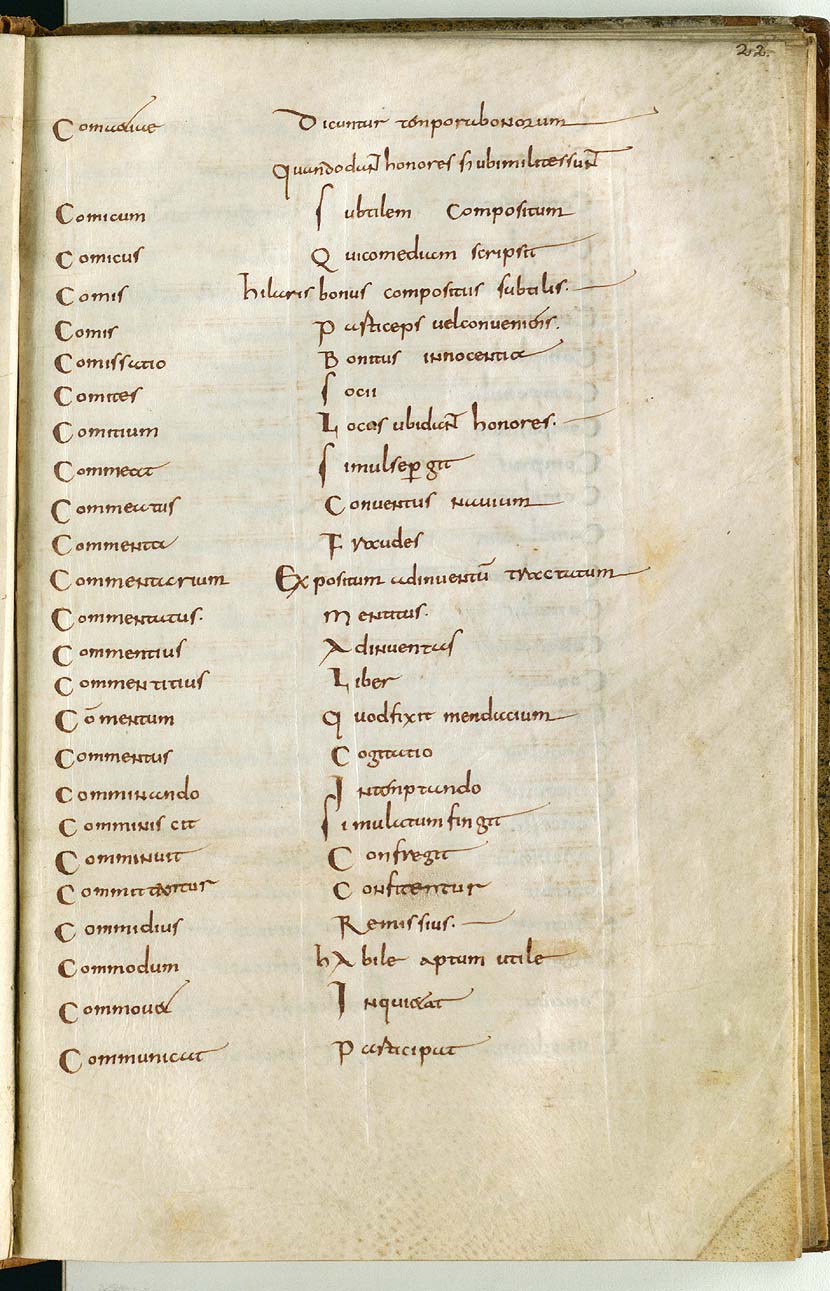 22.
Comitialiae Dicuntur temporabonorum
Quandodant honores subimilitessunt
Comicum Subtilem Compositum
Comicus Quicomediam scripsit
Comis hilaris bonus compositus subtilis.
Comis Particeps uelconueniens.
Comissatio Bonitus innocentia
Comites Socii
Comitium Locas ubidant honores.
Commeat Simulsepergit
Commeatus Conuentus nauium
Commenta Fraudes
Commentarium Expositum adinuentū tractatum
Commentatus. mentitus.
Commentius Adinuentas
Commentitius Liber
Cōmentum Quodfixit mendacium
Commentus Cogitatio
Comminando Intemptando
Comminiscit Simulatumfingit
Comminuit Confregit
Committentur Confitentur
Commidius Remissius.
Commodum hAbile aptum utile
Commouet Inquietat
Communicat Participat